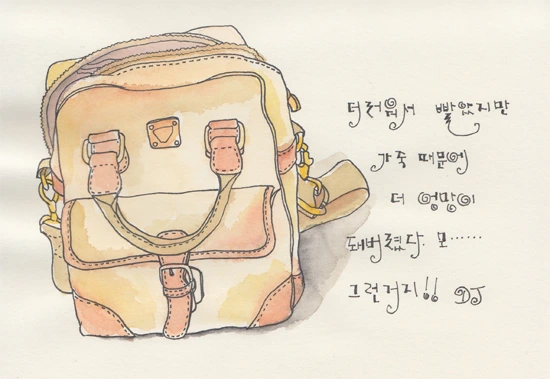 더러워서 빨았지만
가죽 때문에
더 엉망이
돼버렸다. 모……
그런거지!! DJ